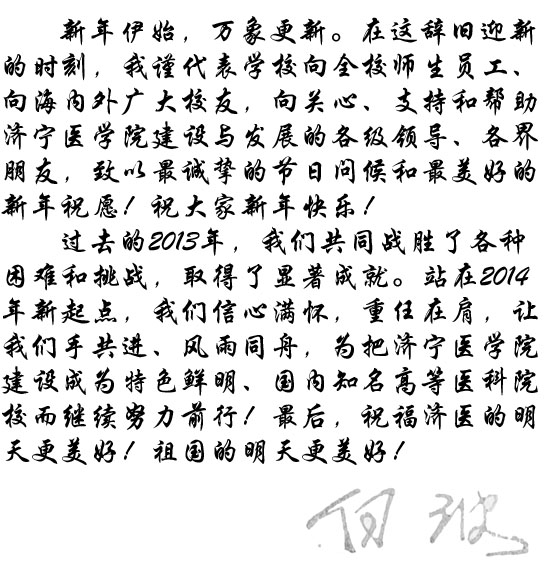 新年伊始，万象更新。在这辞旧迎新
的时刻，我谨代表学校向全校师生员工、
向海内外广大校友，向关心、支持和帮助
济宁医学院建设与发展的各级领导、各界
朋友，致以最诚挚的节日问候和最美好的
新年祝愿！祝大家新年快乐！
过去的2013年，我们共同战胜了各种
困难和挑战，取得了显著成就。站在2014
年新起点，我们信心满怀，重任在肩，让
我们手共进、风雨同舟，为把济宁医学院
建设成为特色鲜明、国内知名高等医科院
校而继续努力前行！最后，祝福济医的明
天更美好！祖国的明天更美好！